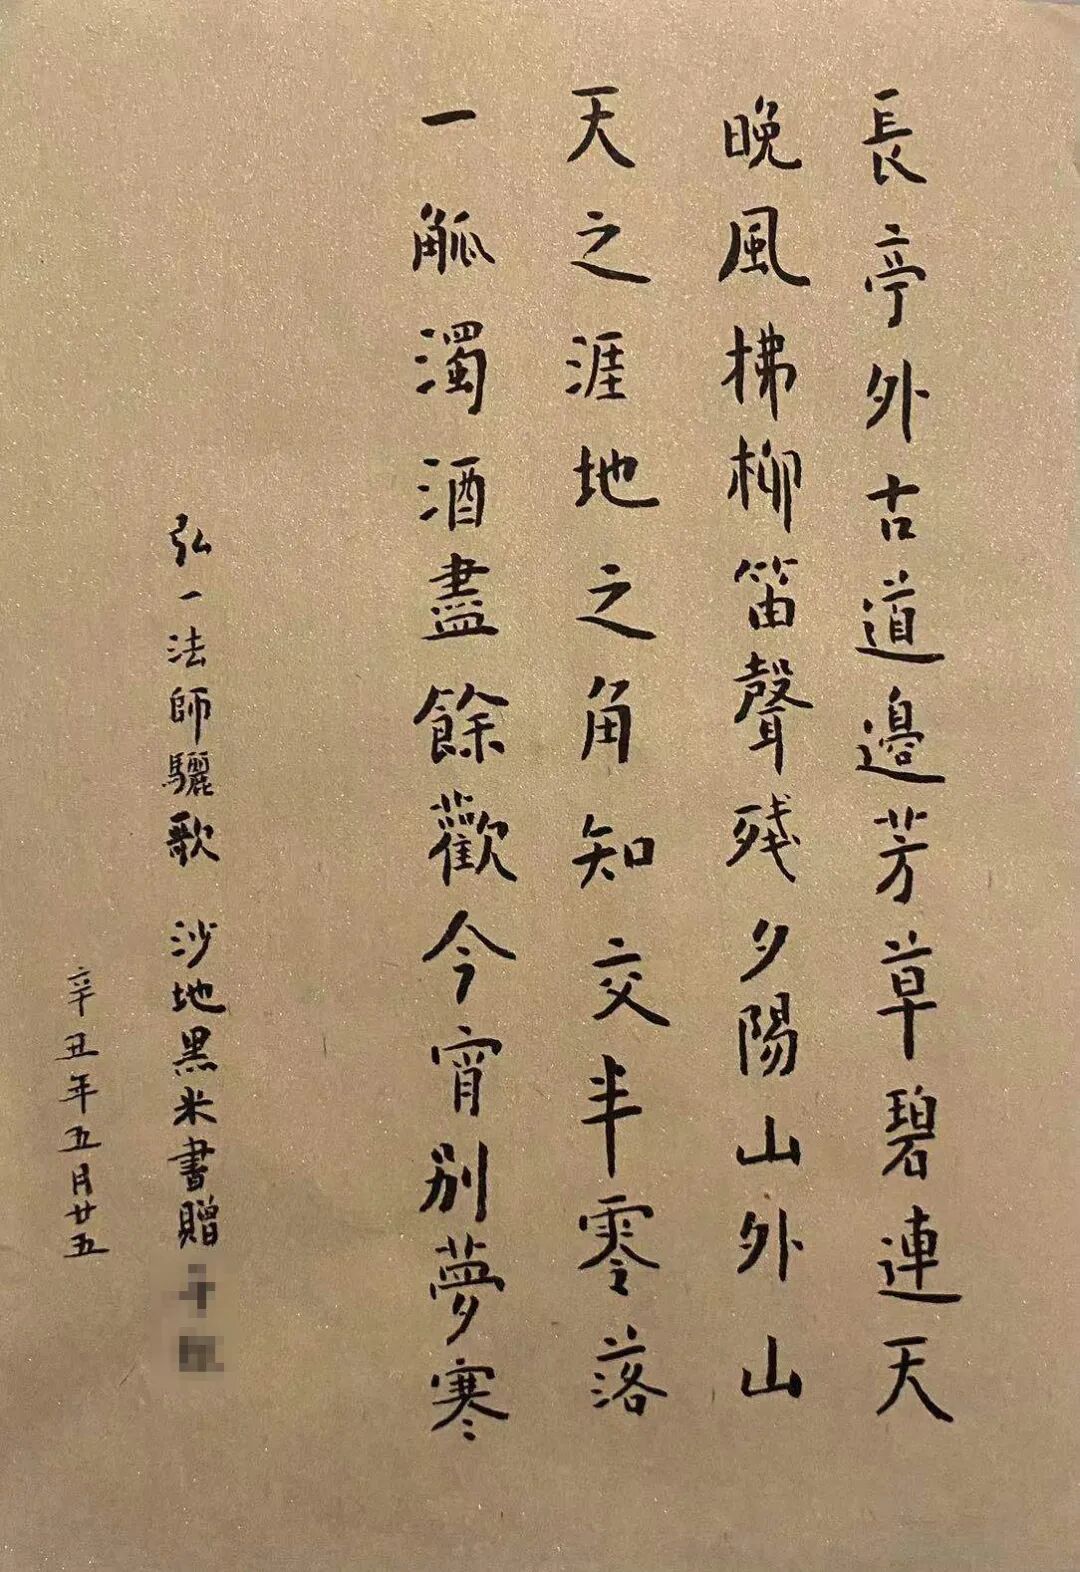 長亭外古道邊芳草碧連天
晚風拂柳笛聲殘夕陽山外山
天之涯地之角知交半零落
一觚濁酒盡餘歡今宵別夢寒
弘一法師驪歌 沙地黑米書贈
辛丑年五月廿五